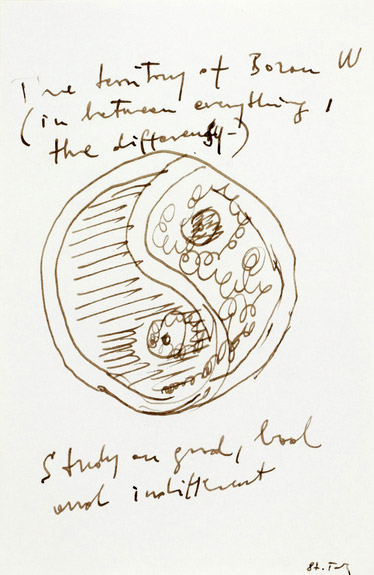 The territory of Boron W
(in between everything,
the differency-)
Study on good, bad
and indifferent